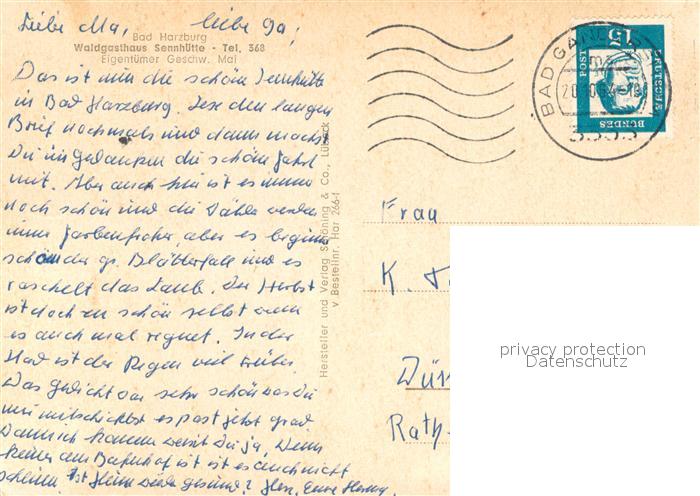 Liebe Ma, liebe Ga,
Bad Harzburg
Waldgasthaus Sennhütte - Tel. 368
Eigentümer Geschw. Mai
Das ist nun die schöne Sennhütte
in Bad Harzburg. Lese den langen
Brief nochmals und dann machst
Du in gedanken die schöne Fahrt
mit. Aber auch hier ist es immer
noch schön und die Wälder werden
immer farbenfroher, aber es beginnt
schon der gr. Blätterfall und es
raschelt das Laub. Der Herbst
ist doch zu schön selbst wenn
es auch mal regnet. In der
Stadt ist der Regen viel trüber.
Das gedicht war sehr schön was Du
mir mitschickst es past jetzt grad.
Wann ich komme weist Du ja, Wenn
keiner am Bahnhof ist ist es auch nicht
schlimm. Ist Heini wieder gesund? Herz. Eure
Hersteller und Verlag Schöning & Co., Lübeck
v Bestellnr. Har 266-f
BAD GANDERSHEIM
20.10.64-18
3353
15
DEUTSCHE
BUNDES
POST
Frau
K.
Dür
Rath-
privacy protection
Datenschutz